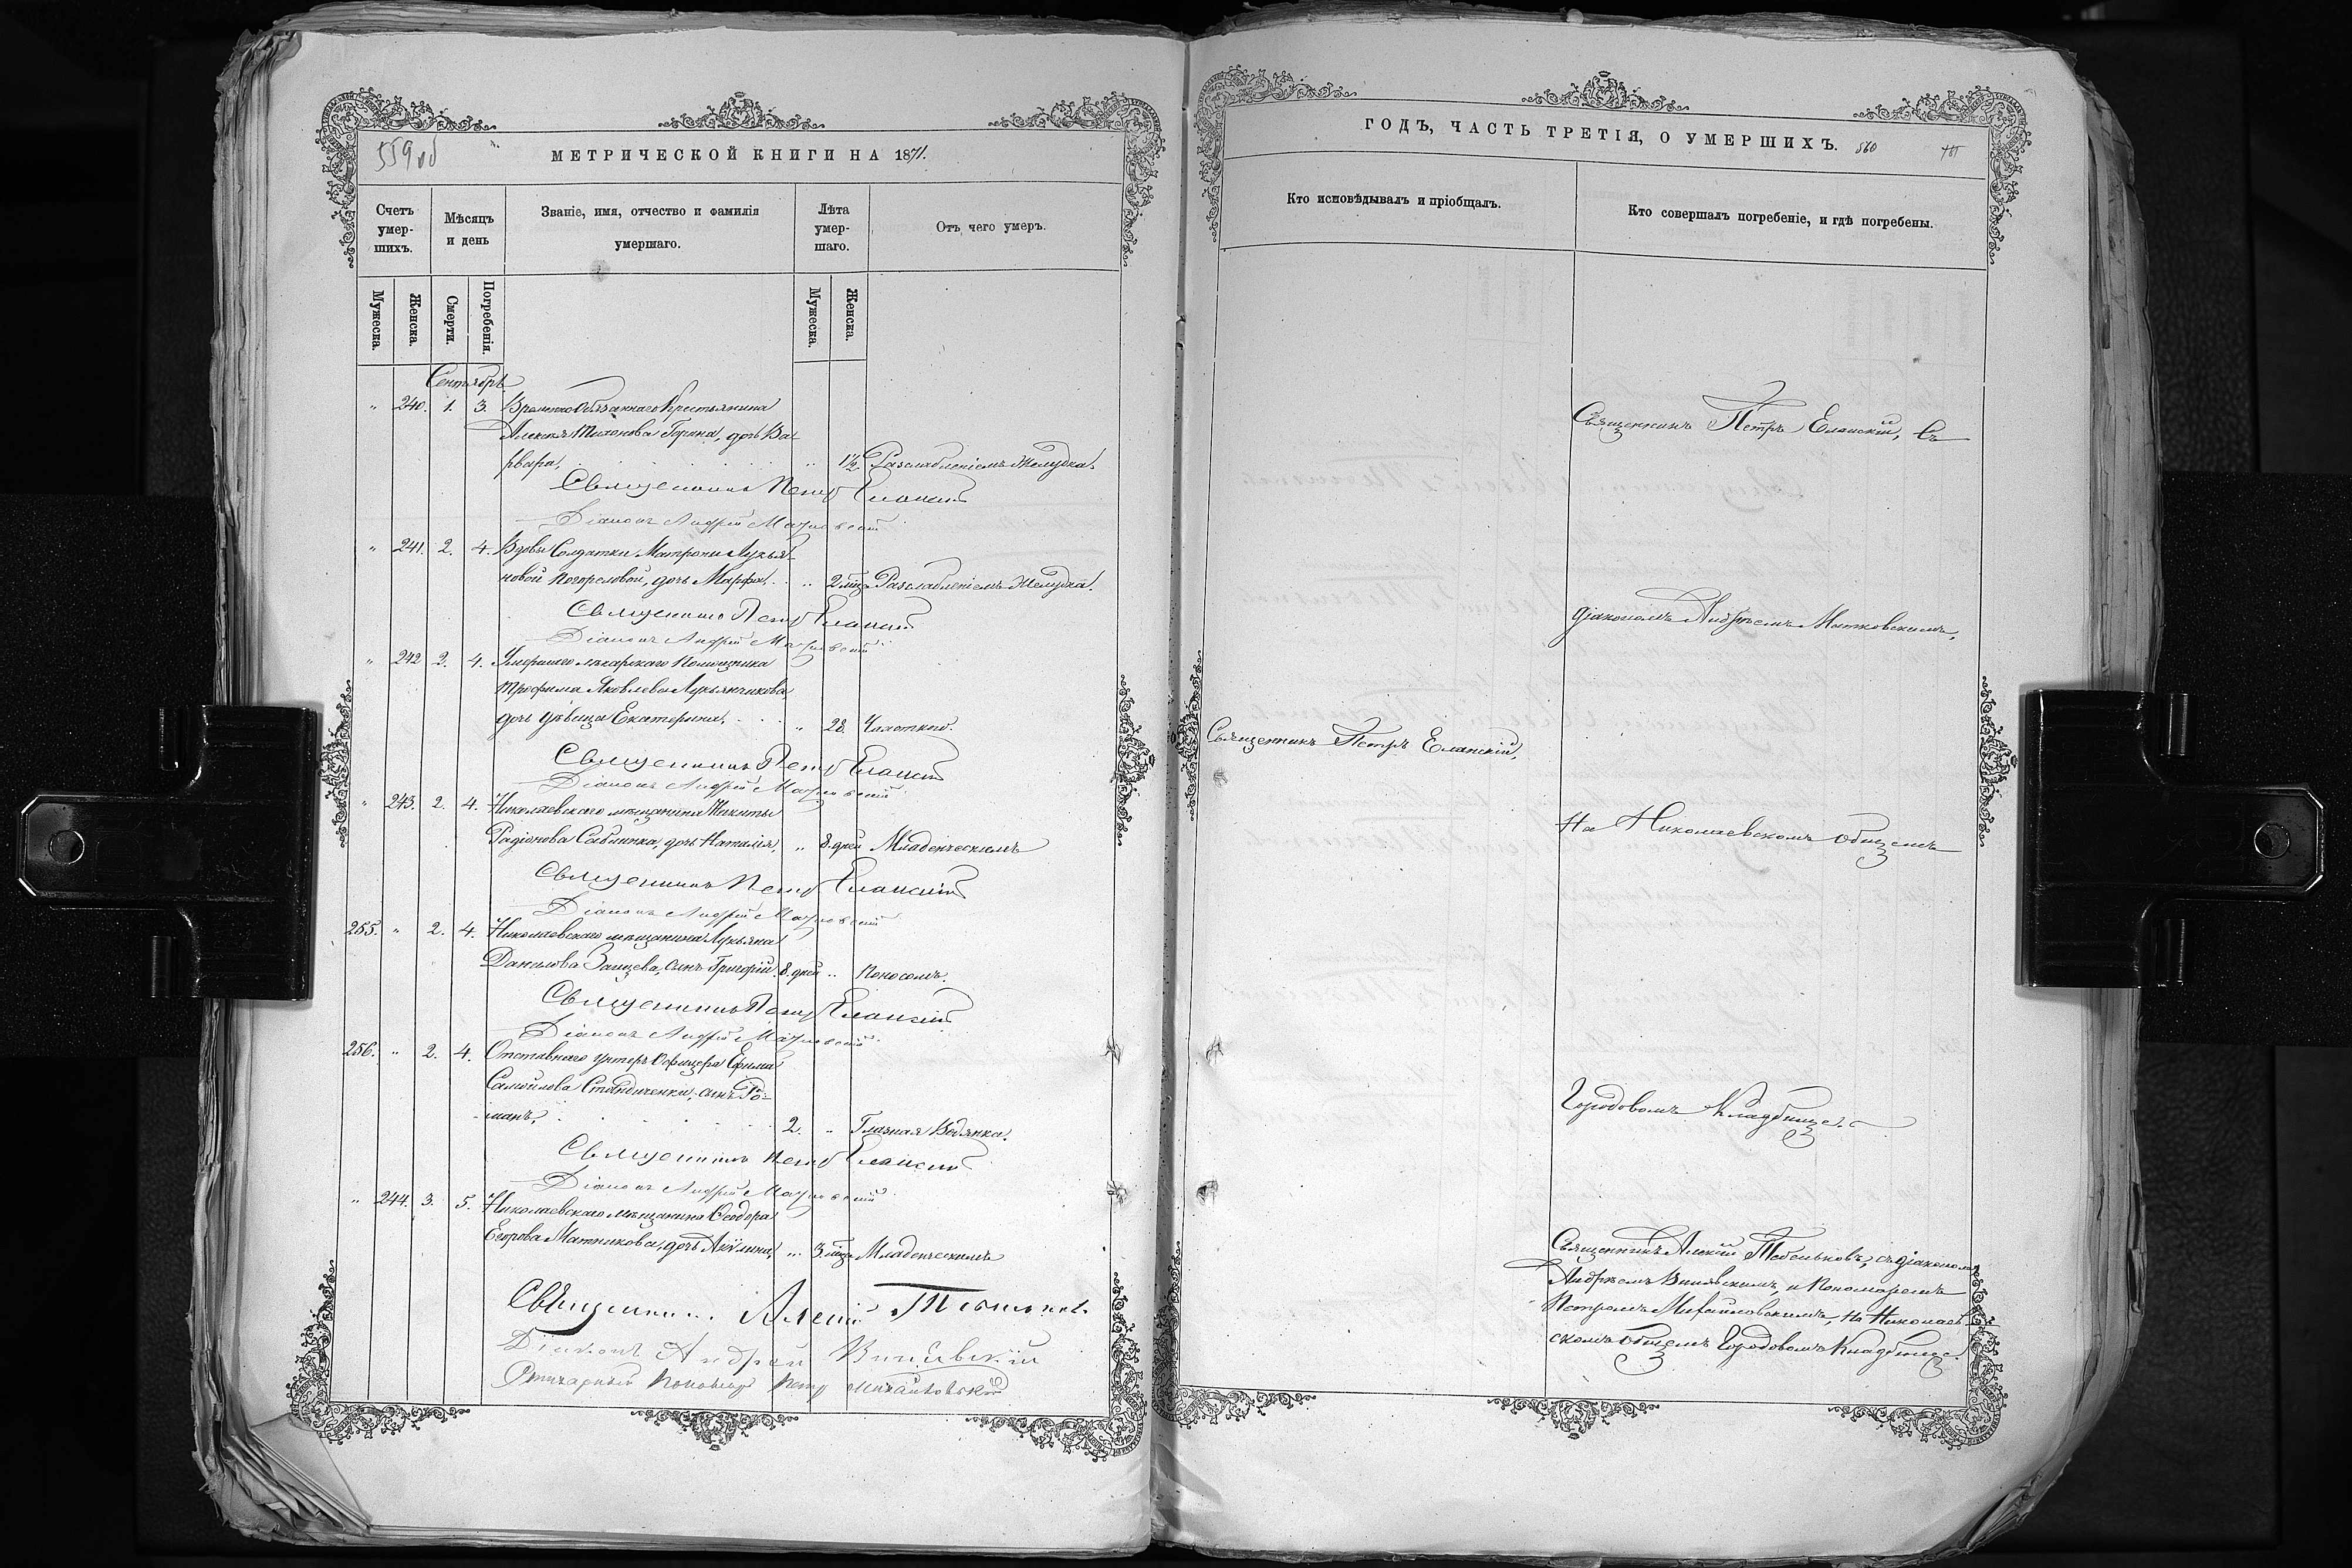 559 об
МЕТРИЧЕСКОЙ КНИГИ НА 1871.
Счетъ умер-шихъ.
Мѣсяцъ и день
Званіе, имя, отчество и фамилія умершаго.
Лѣта умер-шаго.
Отъ чего умеръ.
Мужеска.
Женска.
Смерти.
Погребенія.
Мужеска.
Женска.
Сентябрь
" 240. 1. 3. Временно Обязаннаго Крестьянина
Алексѣя Тихонова Горина, дочь Ва-
рвара, " 1½ Разслабленіемъ Желудка.
Священникъ Петръ Еланскій
Діаконъ Андрей Матковскій
" 241. 2. 4. Вдовы Солдатки Матроны Лукья-
новой Погореловой, дочь Марфа. " 2 мца Разслабленіемъ Желудка.
Священникъ Петръ Еланскій
Діаконъ Андрей Матковскій
" 242 2. 4. Умершаго лекарскаго Помощника
Трофима Яковлева Лукьянчикова
дочь дѣвица Екатерина, " 28. Чахоткою.
Священникъ Петръ Еланскій
Діаконъ Андрей Матковскій
" 243. 2. 4. Николаевскаго мѣщанина Никиты
Радіонова Савлинка, дочь Наталія, " 8. дней Младенческимъ
Священникъ Петръ Еланскій
Діаконъ Андрей Матковскій
255. " 2. 4. Николаевскаго мѣщанина Лукьяна
Данилова Заицева, сынъ Григорій. 8. дней " Поносомъ.
Священникъ Петръ Еланскій
Діаконъ Андрей Матковскій
256. " 2. 4. Отставнаго унтеръ Офицера Ефима
Самойлова сынъ Ро-
манъ, 2. " Водянка.
Священникъ Петръ Еланскій
Діаконъ Андрей Матковскій
" 244. 3. 5. Николаевскаго мѣщанина Ѳеодора
Егорова Матникова, дочь Акулина, " 3. мца Младенческимъ
Священникъ Алексій Тебеньковъ
Діаконъ Андрей Винявскій
Пономарь Петръ Михайловскій
ГОДЪ, ЧАСТЬ ТРЕТІЯ, О УМЕРШИХЪ. 560
Кто исповѣдывалъ и пріобщалъ.
Кто совершалъ погребеніе, и гдѣ погребены.
Священникъ Петръ Еланскій, Съ
діакономъ Андреемъ Матковскимъ,
Священникъ Петръ Еланскій,
На Николаевскомъ общемъ
Городовомъ Кладбище.
Священникъ Алексій Тебеньковъ, съ діакономъ
Андреемъ Винявскимъ, и Пономаремъ
Петромъ Михайловскимъ, На Николаев-
скомъ общемъ Городовомъ Кладбище.